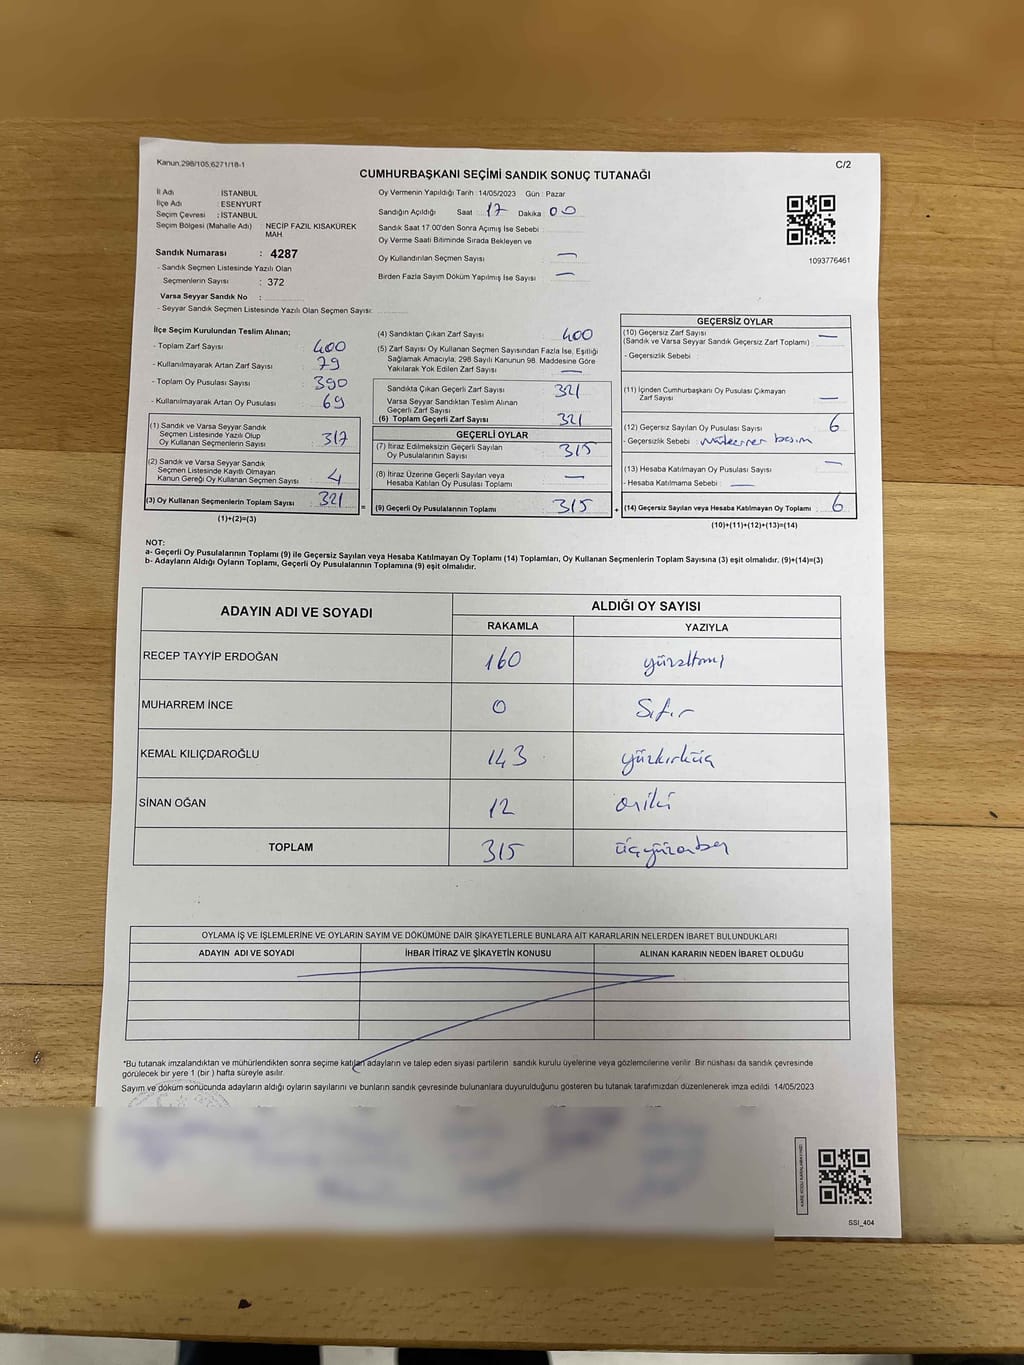 Kanun.298/105,6271/18-1
C/2
CUMHURBAŞKANI SEÇİMİ SANDIK SONUÇ TUTANAĞI
İl Adı : İSTANBUL
İlçe Adı : ESENYURT
Seçim Çevresi : İSTANBUL
Seçim Bölgesi (Mahalle Adı) : NECİP FAZIL KISAKÜREK
MAH.
Sandık Numarası : 4287
- Sandık Seçmen Listesinde Yazılı Olan
Seçmenlerin Sayısı : 372
Varsa Seyyar Sandık No :
- Seyyar Sandık Seçmen Listesinde Yazılı Olan Seçmen Sayısı:
Oy Vermenin Yapıldığı Tarih : 14/05/2023 Gün : Pazar
Sandığın Açıldığı Saat 17 Dakika 00
Sandık Saat 17:00'den Sonra Açımış İse Sebebi :
Oy Verme Saati Bitiminde Sırada Bekleyen ve
Oy Kullandırılan Seçmen Sayısı —
Birden Fazla Sayım Döküm Yapılmış İse Sayısı —
1093776461
İlçe Seçim Kurulundan Teslim Alınan;
- Toplam Zarf Sayısı 400
- Kullanılmayarak Artan Zarf Sayısı 79
- Toplam Oy Pusulası Sayısı 390
- Kullanılmayarak Artan Oy Pusulası 69
(1) Sandık ve Varsa Seyyar Sandık
Seçmen Listesinde Yazılı Olup
Oy Kullanan Seçmenlerin Sayısı 317
(2) Sandık ve Varsa Seyyar Sandık
Seçmen Listesinde Kayıtlı Olmayan
Kanun Gereği Oy Kullanan Seçmen Sayısı 4
(3) Oy Kullanan Seçmenlerin Toplam Sayısı 321
(1)+(2)=(3)
(4) Sandıktan Çıkan Zarf Sayısı 400
(5) Zarf Sayısı Oy Kullanan Seçmen Sayısından Fazla İse, Eşitliği
Sağlamak Amacıyla; 298 Sayılı Kanunun 98. Maddesine Göre
Yakılarak Yok Edilen Zarf Sayısı —
Sandıkta Çıkan Geçerli Zarf Sayısı 321
Varsa Seyyar Sandıktan Teslim Alınan
Geçerli Zarf Sayısı
(6) Toplam Geçerli Zarf Sayısı 321
GEÇERLİ OYLAR
(7) İtiraz Edilmeksizin Geçerli Sayılan
Oy Pusulasının Sayısı 315
(8) İtiraz Üzerine Geçerli Sayılan veya
Hesaba Katılan Oy Pusulası Toplamı —
= (9) Geçerli Oy Pusulalarının Toplamı 315 +
GEÇERSİZ OYLAR
(10) Geçersiz Zarf Sayısı —
(Sandık ve Varsa Seyyar Sandık Geçersiz Zarf Toplamı)
- Geçersizlik Sebebi
(11) İçinden Cumhurbaşkanı Oy Pusulası Çıkmayan
Zarf Sayısı —
(12) Geçersiz Sayılan Oy Pusulası Sayısı 6
- Geçersizlik Sebebi : mükerrer basım
(13) Hesaba Katılmayan Oy Pusulası Sayısı —
- Hesaba Katılmama Sebebi : —
(14) Geçersiz Sayılan veya Hesaba Katılmayan Oy Toplamı 6
(10)+(11)+(12)+(13)=(14)
NOT:
a- Geçerli Oy Pusulalarının Toplamı (9) ile Geçersiz Sayılan veya Hesaba Katılmayan Oy Toplamı (14) Toplamları, Oy Kullanan Seçmenlerin Toplam Sayısına (3) eşit olmalıdır. (9)+(14)=(3)
b- Adayların Aldığı Oyların Toplamı, Geçerli Oy Pusulalarının Toplamına (9) eşit olmalıdır.
ADAYIN ADI VE SOYADI
ALDIĞI OY SAYISI
RAKAMLA YAZIYLA
RECEP TAYYİP ERDOĞAN 160 yüzaltmış
MUHARREM İNCE 0 Sıfır
KEMAL KILIÇDAROĞLU 143 yüzkırküç
SİNAN OĞAN 12 oniki
TOPLAM 315 üçyüzonbeş
OYLAMA İŞ VE İŞLEMLERİNE VE OYLARIN SAYIM VE DÖKÜMÜNE DAİR ŞİKAYETLERLE BUNLARA AİT KARARLARIN NELERDEN İBARET BULUNDUKLARI
ADAYIN ADI VE SOYADI İHBAR İTİRAZ VE ŞİKAYETİN KONUSU ALINAN KARARIN NEDEN İBARET OLDUĞU
*Bu tutanak imzalandıktan ve mühürlendikten sonra seçime katılan adayların ve talep eden siyasi partilerin sandık kurulu üyelerine veya gözlemcilerine verilir. Bir nüshası da sandık çevresinde
görülecek bir yere 1 (bir ) hafta süreyle asılır.
Sayım ve döküm sonucunda adayların aldığı oyların sayılarını ve bunların sandık çevresinde bulunanlara duyurulduğunu gösteren bu tutanak tarafımızdan düzenlenerek imza edildi 14/05/2023
SSI_404